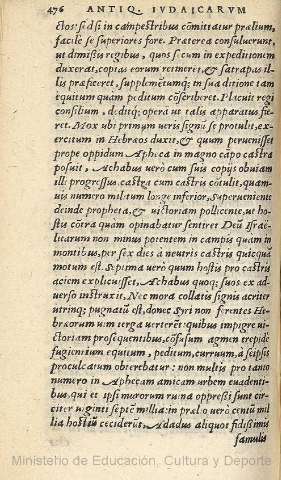 476 ANTIQ. IVDAICARVM
ctos: sed si in campestribus cõmittatur prælium,
facile se superiores fore. Præterea consulucrunt,
ut dimißis regibus, quos secum in expeditionem
duxerat, copias eorum retineret, & satrapas il-
lis præficeret, supplementumq; in sua ditione tam
equitum quàm peditum cõscriberet. Placuit regi
consilium, deditq; opera ut talis apparatus fie-
ret. Mox ubi primum ueris signũ se protulit, ex-
ercitum in Hebræos duxit, & quum peruenisset
prope oppidum Apheca in magno campo castra
posuit. Achabus uerò cum suis copijs obuiam
illi progressus castra cum castris cõtulit, quam-
uis numero militum longe inferior, Superueniente
deinde propheta, & uictoriam pollicente, ut ho-
stis cõtra quàm opinabatur sentiret Deũ Israë-
litarum non minus potentem in campis quàm in
montibus, per sex dies à neutris castris quicquã
motum est. Septima uerò quum hostis pro castris
aciem explicuisset, Achabus quoq; suos ex ad-
uerso instruxit. Nec mora collatis signis acriter
utrinq; pugnatũ est, donec Syri non ferentes He-
bræorum uim terga uerteret: quibus impigre ui-
ctoriam prosequentibus, cõfusum agmen trepide
fugientium equitum, peditum, curruum, à seipsis
proculcatum obterebatur: non multis pro tanto
numero in Aphecam amicam urbem euadenti-
bus, qui et ipsi murorum ruina oppreßi sunt cir-
citer uiginti septẽ millia: in prælio uerò centũ mil-
lia hostiũ ceciderũt. Adadus aliquot fidißimis
famulis
Ministerio de Educación, Cultura y Deporte